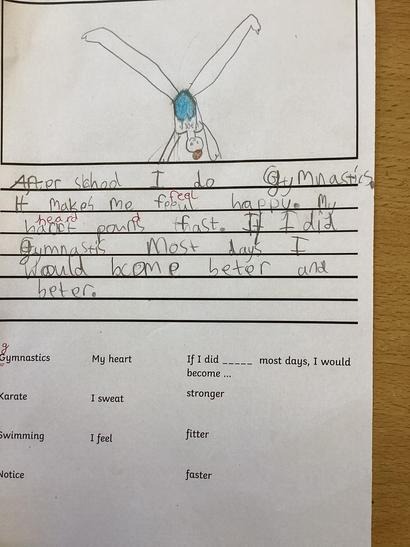 After school I do Gymnastics.
feel
It makes me feel happy. My
heard
harct pounds fhast. If I did
Gymnastis Most days I
Would bcome beter and
beter.
g
Gymnastics My heart If I did _____ most days, I would
become ...
Karate I sweat stronger
Swimming I feel fitter
Notice faster